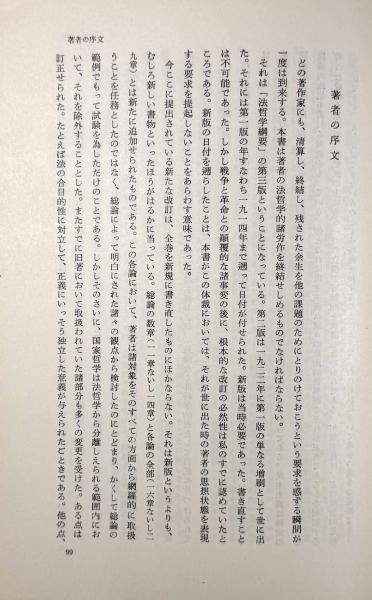 著者の序文
著者の序文
どの著作家にも、清算し、終結し、残された余生を他の課題のためにとりのけておこうという要求を感ずる瞬間が
一度は到来する。本書は著者の法哲学的諸労作を終結せしめるものでなければならない。
それは「法哲学綱要」の第三版ということになっている。第二版は一九二二年に第一版の単なる増刷として世に出
た。それには第一版の年すなわち一九一四年まで遡って日付が付せられた。新版は当時必要であった。書き直すこと
は不可能であった。しかし戦争と革命との顚覆的な諸事変の後に、根本的な改訂の必然性は私のすでに認めていたと
ころである。新版の日付を遡らしたことは、本書がこの体裁においては、それが世に出た時の著者の思想状態を表現
する要求を提起しないことをあらわす意味であった。
今ここに提出されている新たな改訂は、全巻を新規に書き直したものにほかならない。それは新版というよりも、
むしろ新しい書物といったほうがはるかに当っている。総論の数章(一一章ないし一四章)と各論の全部(一六章ないし二
九章)とは新たに追加せられたものである。この各論において、著者は諸対象をそのすべての方面から網羅的に取扱
うことを任務としたのではなく、総論によって明白にされた諸々の観点から検討したのにとどまり、かくして総論の
範例でもって試験を為しただけのことである。しかしそのさいに、国家哲学は法哲学から分離しえられる範囲内にお
いて、それを除外することとした。またすでに旧著において取扱われていた諸部分も多くの変更を受けた。ある点は
訂正せられた。たとえば法の合目的性に対立して、正義にいっそう独立した意義が与えられたごときである。他の点、
99